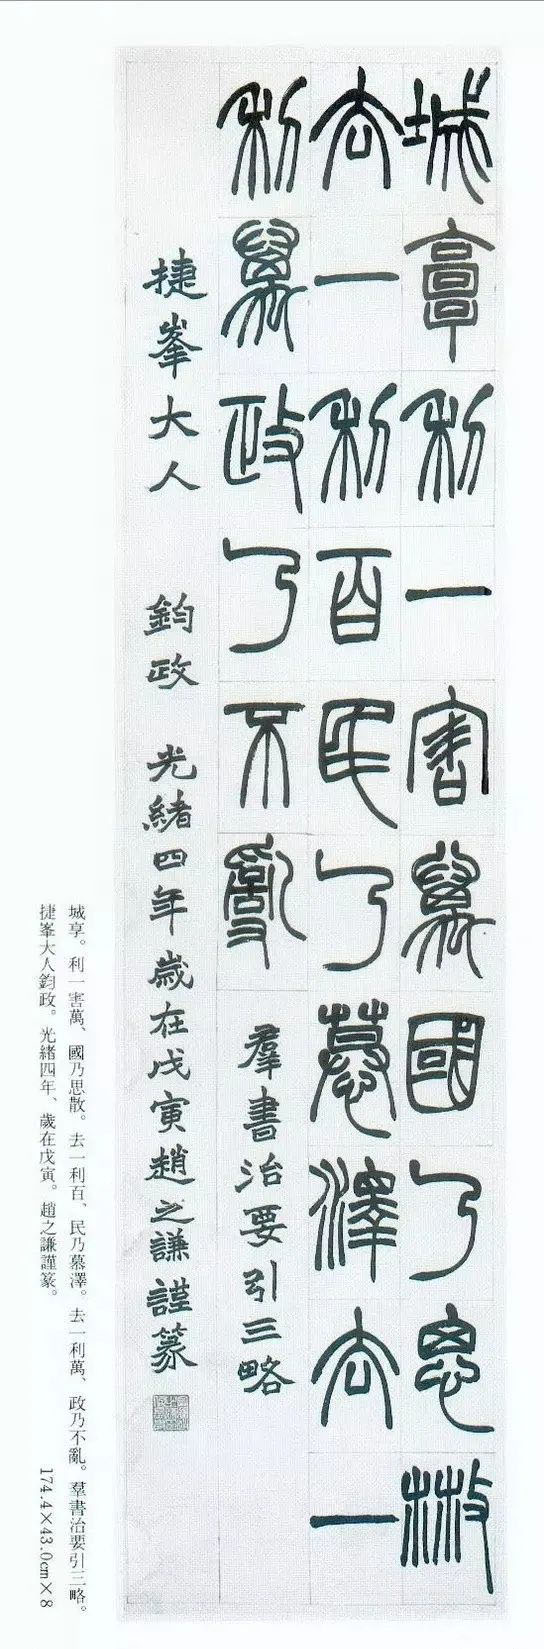 城享利一害萬國乃思散
去一利百民乃慕澤去一
利萬政乃不亂 羣書治要引三略
捷峯大人 鈞政 光緒四年歲在戊寅趙之謙謹篆
城享。利一害萬、國乃思散。去一利百、民乃慕澤。去一利萬、政乃不亂。羣書治要引三略。
捷峯大人鈞政。光緒四年、歲在戊寅。趙之謙謹篆。 174.4×43.0cm×8